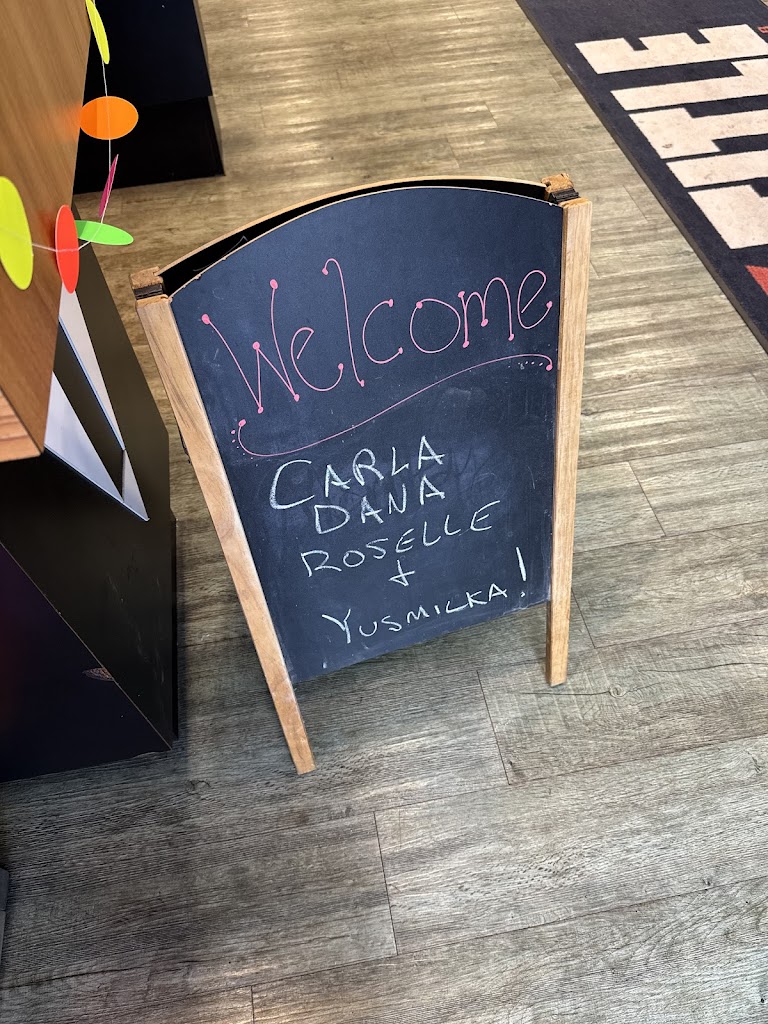 Welcome
CARLA
DANA
ROSELLE
+
YUSMILKA!
TITLE